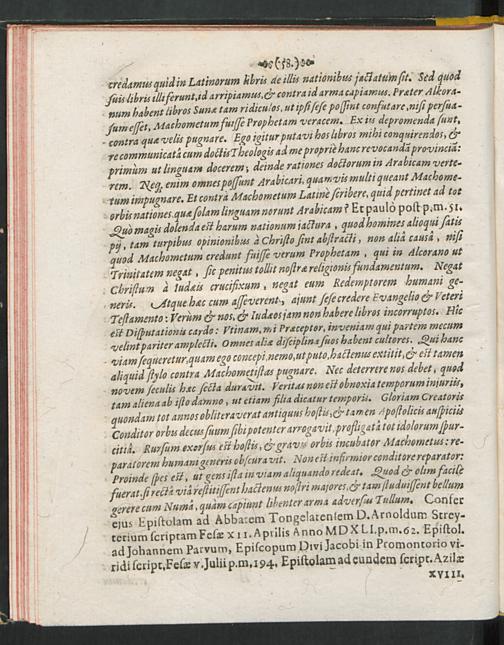 (58.)
credamus quid in Latinorum libris de illis nationibus jactatum sit. Sed quod
suis libris illi ferunt, id arripiamus, & contra id arma capiamus. Præter Alkora-
num habent libros Sunæ tam ridiculos, ut ipsi sese possint confutare, nisi persua-
sum esset, Machometum fuisse Prophetam veracem. Ex iis depromenda sunt,
contra quæ velis pugnare. Ego igitur putavi hos libros mihi conquirendos, &
re communicatâ cum doctis Theologis ad me propriè hanc revocandā provinciā:
primùm ut linguam docerem; deinde rationes doctorum in Arabicam verte-
rem. Neq, enim omnes possunt Arabicari, quamvis multi queant Machome-
tum impugnare. Et contrà Machometum Latinè scribere, quid pertinet ad tot
orbis nationes, quæ solam linguam norunt Arabicam? Et paulò post p. m. 51.
Quò magis dolenda est harum nationum jactura, quod homines alioqui satis
pÿ, tam turpibus opinionibus à Christo sint abstracti, non aliâ causâ, nisi
quod Machometum credunt fuisse verum Prophetam, qui in Alcorano ut
Trinitatem negat, sic penitus tollit nostræ religionis fundamentum. Negat
Christum à Iudæis crucifixum, negat eum Redemptorem humani ge-
neris. Atque hæc cum asseverent, ajunt sese credere Evangelio & Veteri
Testamento: Verùm & nos, & Iudæos jam non habere libros incorruptos. Hîc
est Disputationis cardo: Vtinam, mi Præceptor, inveniam qui partem mecum
velint pariter amplecti. Omnes aliæ disciplinæ suos habent cultores. Qui hanc
viam sequeretur, quam ego concepi, nemo, ut puto, hactenus extitit, & est tamen
aliquid stylo contra Machometistas pugnare. Nec deterrere nos debet, quod
novem seculis hæc secta duravit. Veritas non est obnoxia temporum injuriis,
tam aliena ab isto damno, ut etiam filia dicatur temporis. Gloriam Creatoris
quondam tot annos obliteraverat antiquus hostis, & tamen Apostolicis auspiciis
Conditor orbis decus suum sibi potenter arrogavit, profligatâ tot idolorum spur-
citiâ. Rursum exorsus est hostis, & gravis orbis incubator Machometus: re-
paratorem humani generis obscuravit. Non est infirmior conditore reparator:
Proinde spes est, ut gens ista in viam aliquando redeat. Quod & olim facile
fuerat, si rectâ viâ restitissent hactenus nostri majores, & tam studuissent bellum
gerere cum Numâ, quàm capiunt libenter arma adversus Tullum. Confer
ejus Epistolam ad Abbatem Tongelatensem D. Arnoldum Strey-
terium scriptam Fesæ XII. Aprilis Anno MDXLI. p. m. 62. Epistol.
ad Johannem Parvum, Episcopum Divi Jacobi in Promontorio vi-
ridi script. Fesæ v. Julii p. m. 194. Epistolam ad eundem script. Azilæ
XVIII.